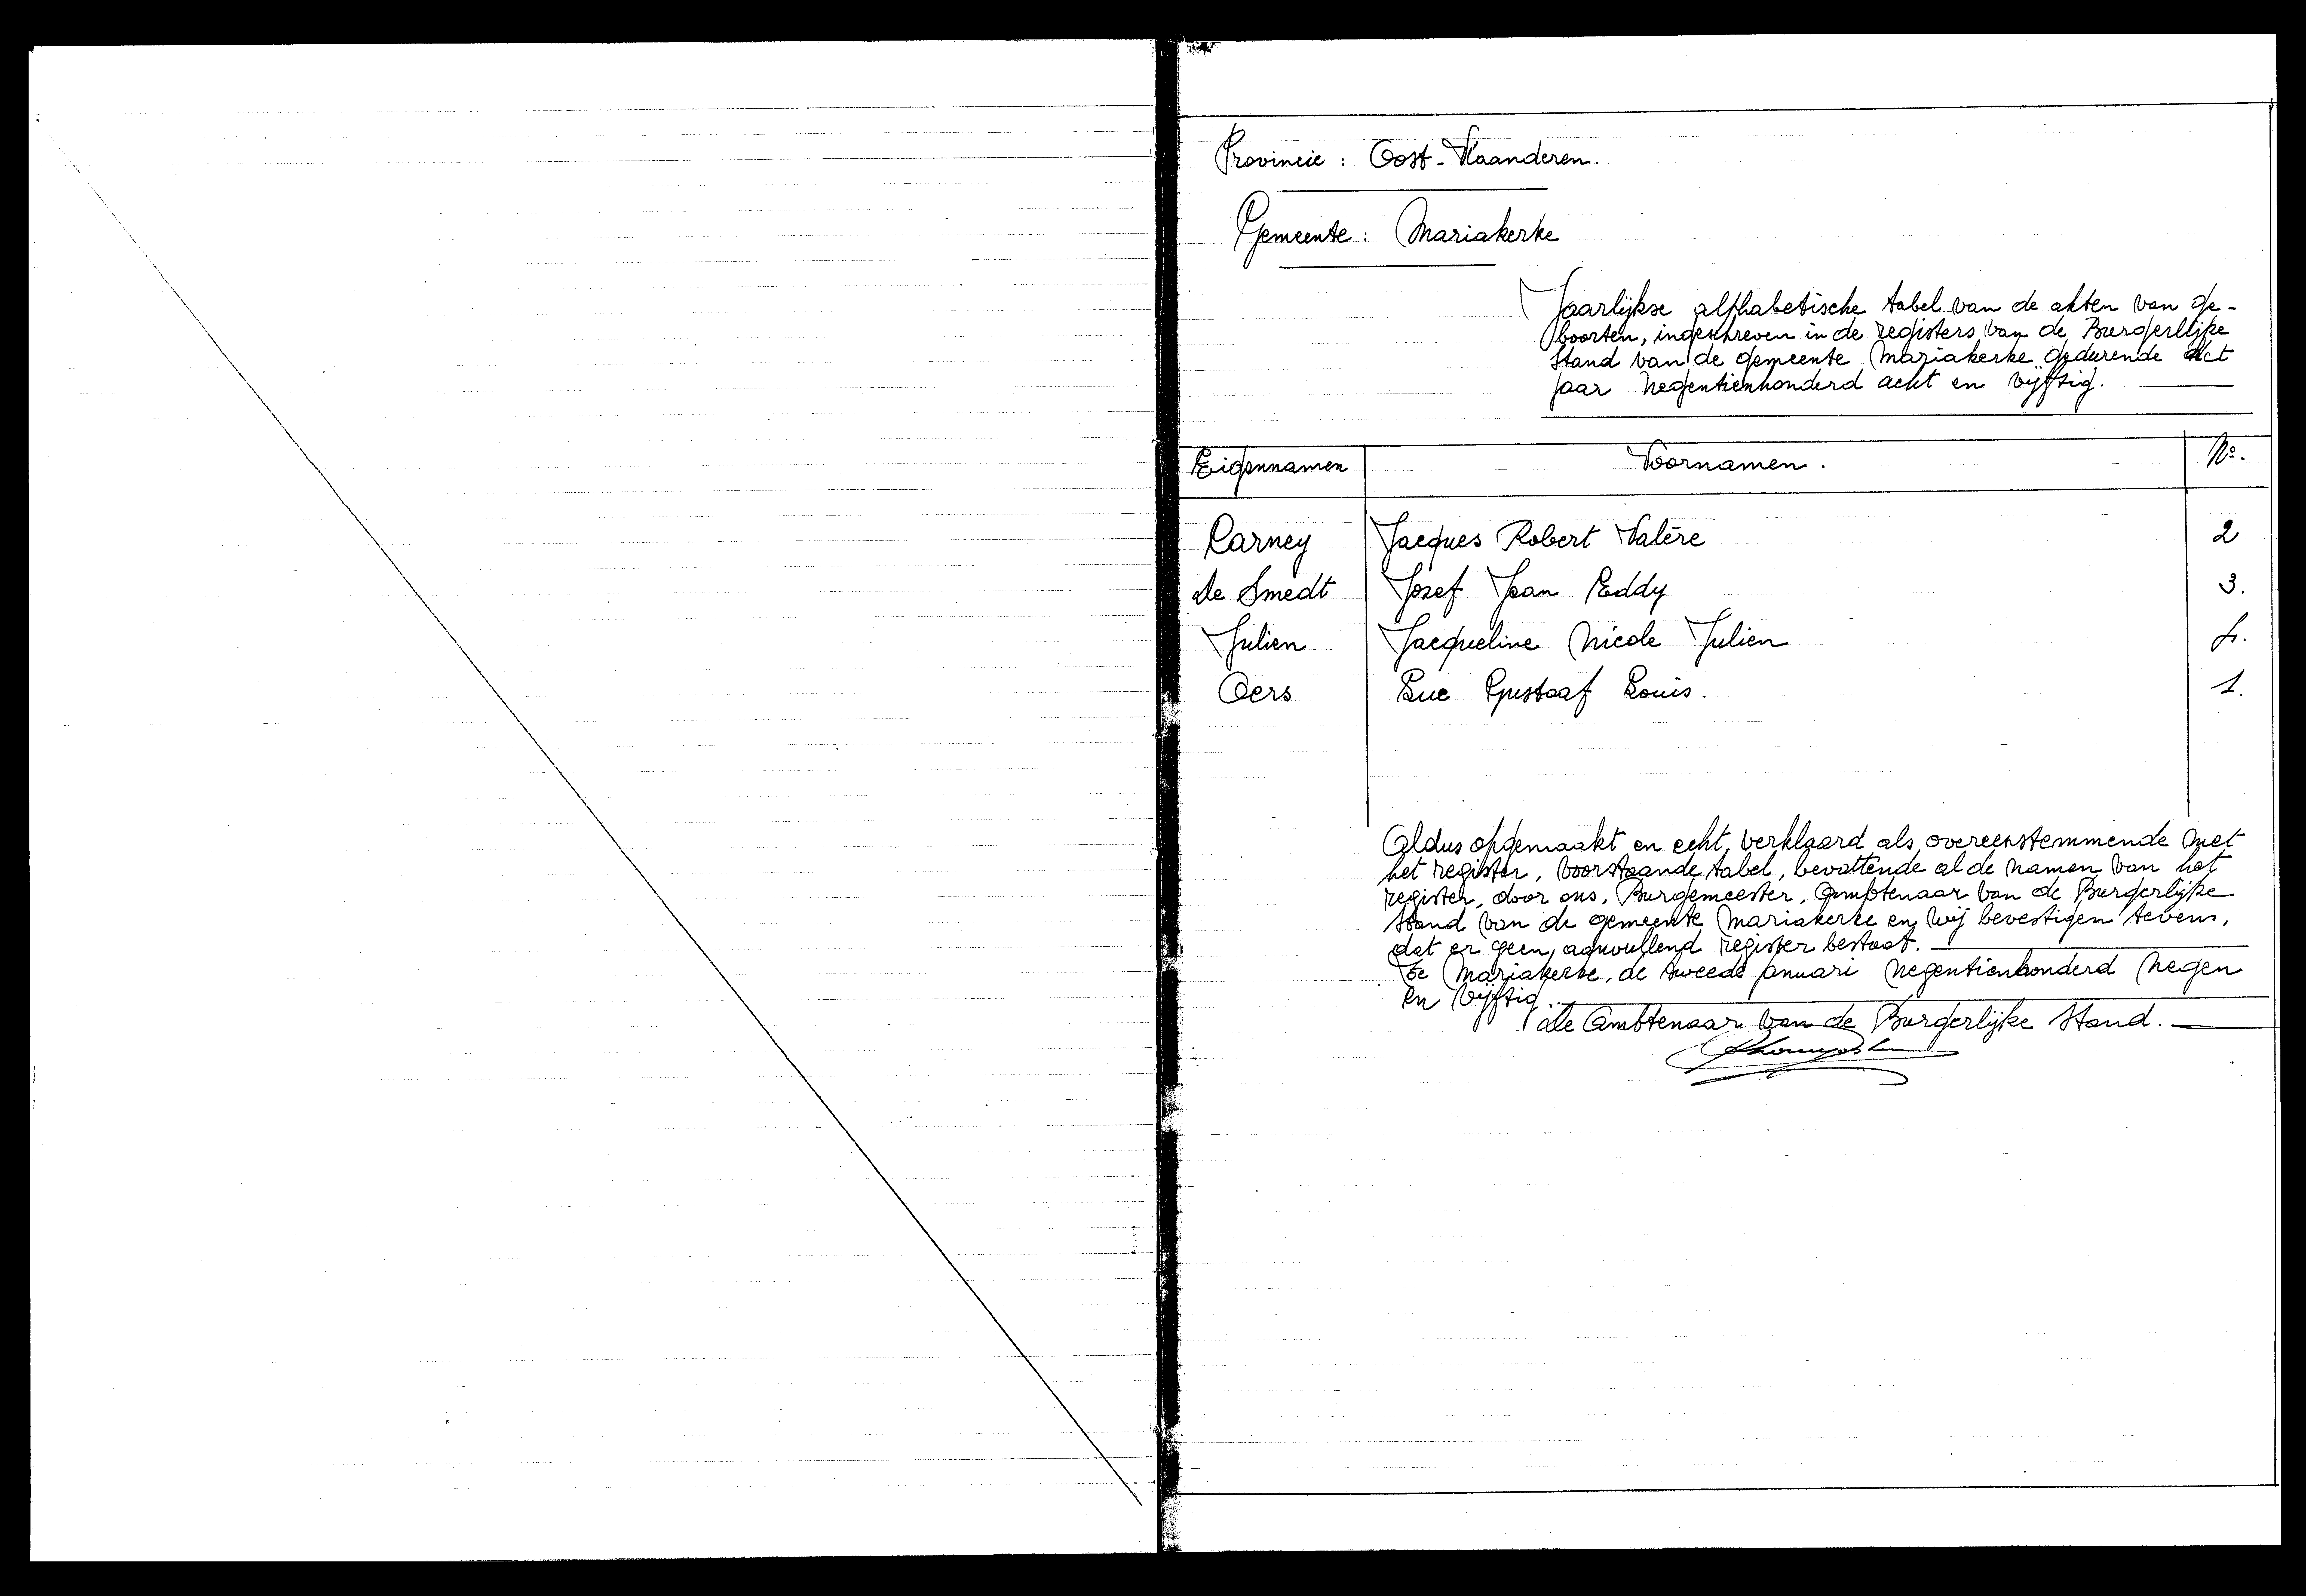 Provincie : Oost-Vlaanderen.
Gemeente : Mariakerke
Jaarlijkse alphabetische tabel van de akten van ge-
boorten, ingeschreven in de registers van de Burgerlijke
Stand van de gemeente Mariakerke gedurende het
jaar negentienhonderd acht en vijftig.
Eigennamen Voornamen. No.
Carney Jacques Robert Valère 2
De Smedt Jozef Jean Eddy 3.
Julien Jacqueline Nicole Julien 4.
Oers Luc Gustaaf Louis. 1.
Aldus opgemaakt en echt verklaard als overeenstemmende met
het register, voorstaande tabel, bevattende al de namen van het
register, door ons, Burgemeester, Ambtenaar van de Burgerlijke
Stand van de gemeente Mariakerke en wij bevestigen tevens,
dat er geen aanvullend register bestaat.
Te Mariakerke, de tweede januari negentienhonderd negen
en vijftig.
De Ambtenaar van de Burgerlijke Stand.